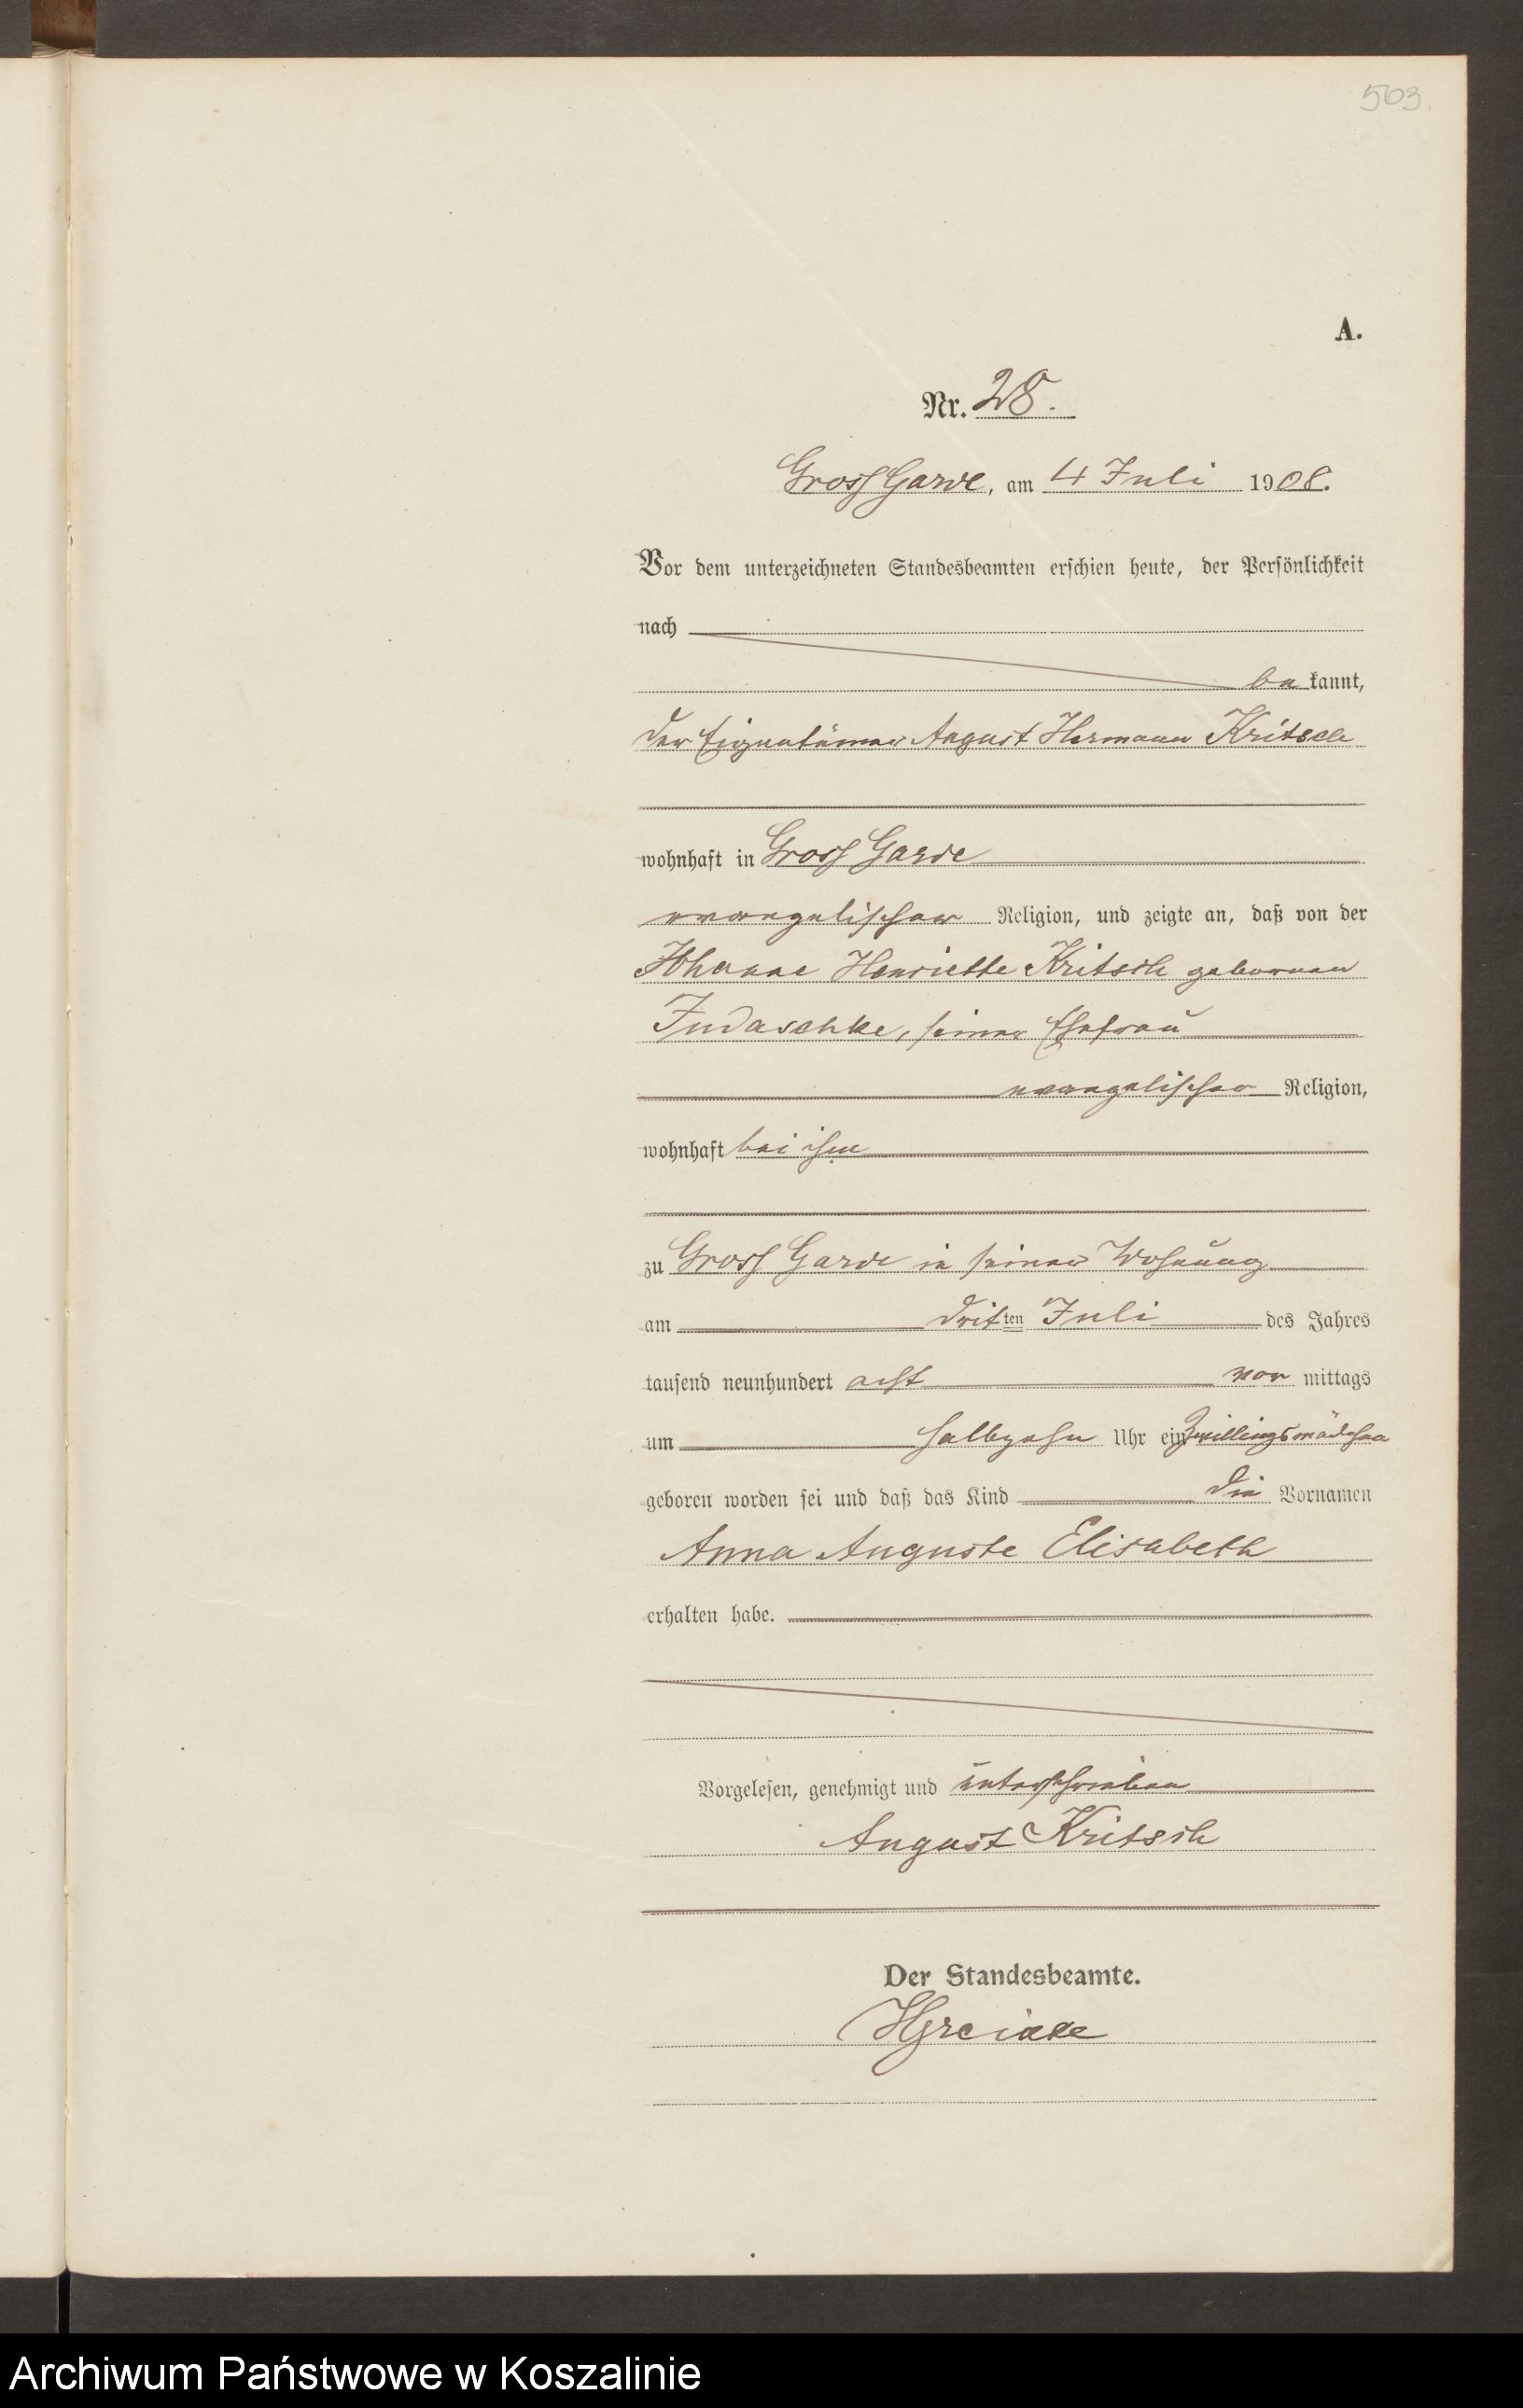 503.
A.
Nr. 28.
Gross Garde, am 4 Juli 1908.
Vor dem unterzeichneten Standesbeamten erschien heute, der Persönlichkeit
nach
be kannt,
der Eigentümer August Hermann Kritsch
wohnhaft in Gross Garde
evangelischer Religion, und zeigte an, daß von der
Johanne Henriette Kritsch geborenen
Judaschke, seiner Ehefrau
evangelischer Religion,
wohnhaft bei ihm
zu Gross Garde in seiner Wohnung
am dritten Juli des Jahres
tausend neunhundert acht vor mittags
um halbzehn Uhr ein Zwillingsmädchen
geboren worden sei und daß das Kind die Vornamen
Anna Auguste Elisabeth
erhalten habe.
Vorgelesen, genehmigt und unterschrieben
August Kritsch
Der Standesbeamte.
Archiwum Państwowe w Koszalinie